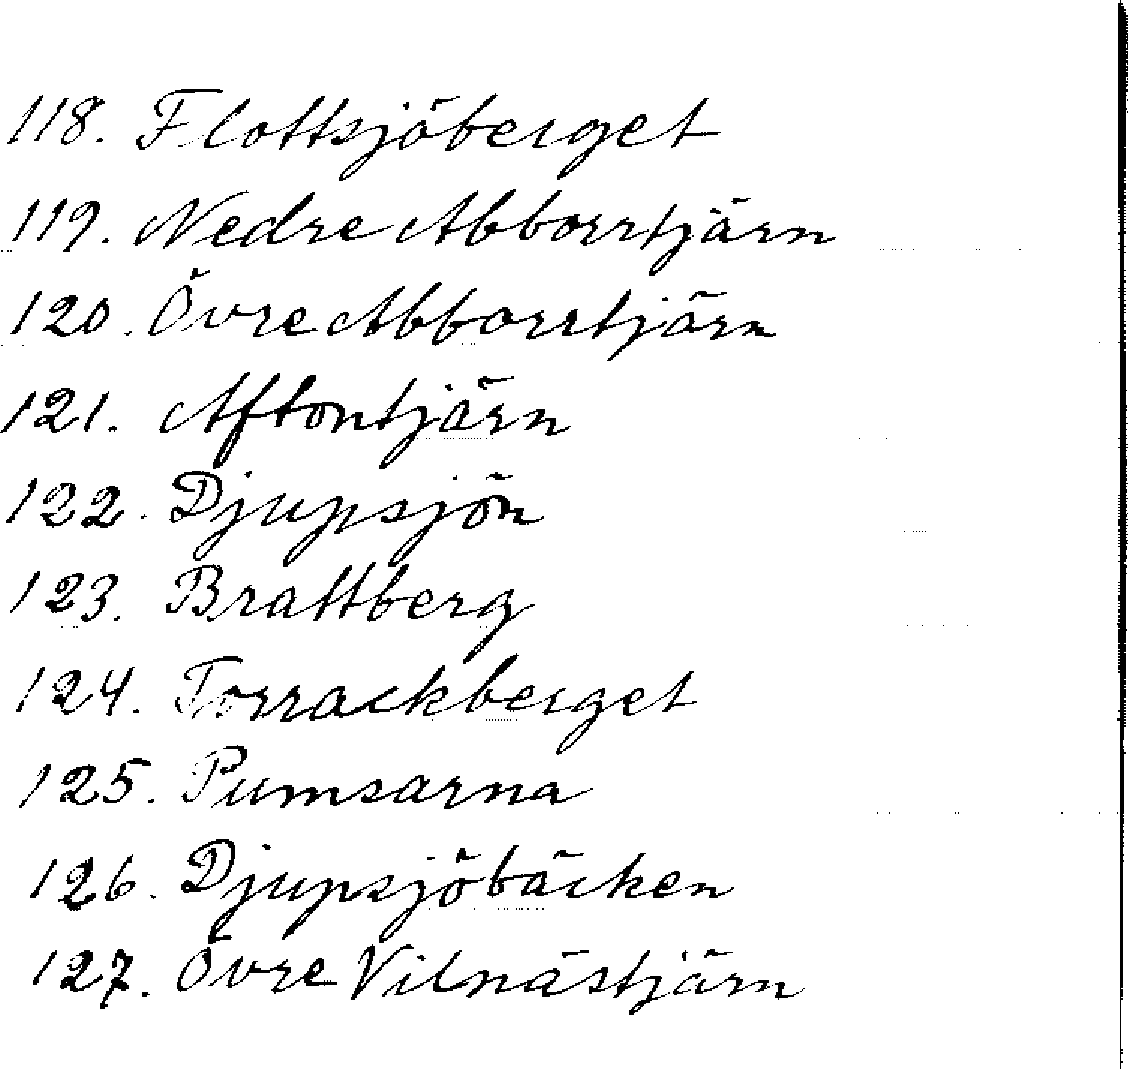 118. Flottsjöberget
119. Nedre Abborrtjärn
120. Övre Abborrtjärn
121. Aftontjärn
122. Djupsjön
123. Brattberg
124. Torrackberget
125. Pumsarna
126. Djupsjöbäcken
127. Övre Vilnästjärn